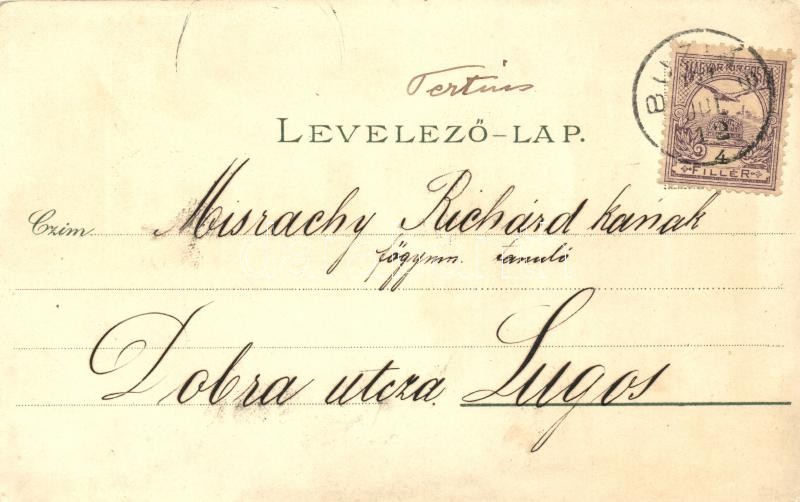 Tertius
LEVELEZŐ-LAP.
MAGYAR KIR. POSTA
2 FILLÉR
Czim. Misrachy Richárd kanak
főgymn. tanuló
Dobra utcza. Lugos